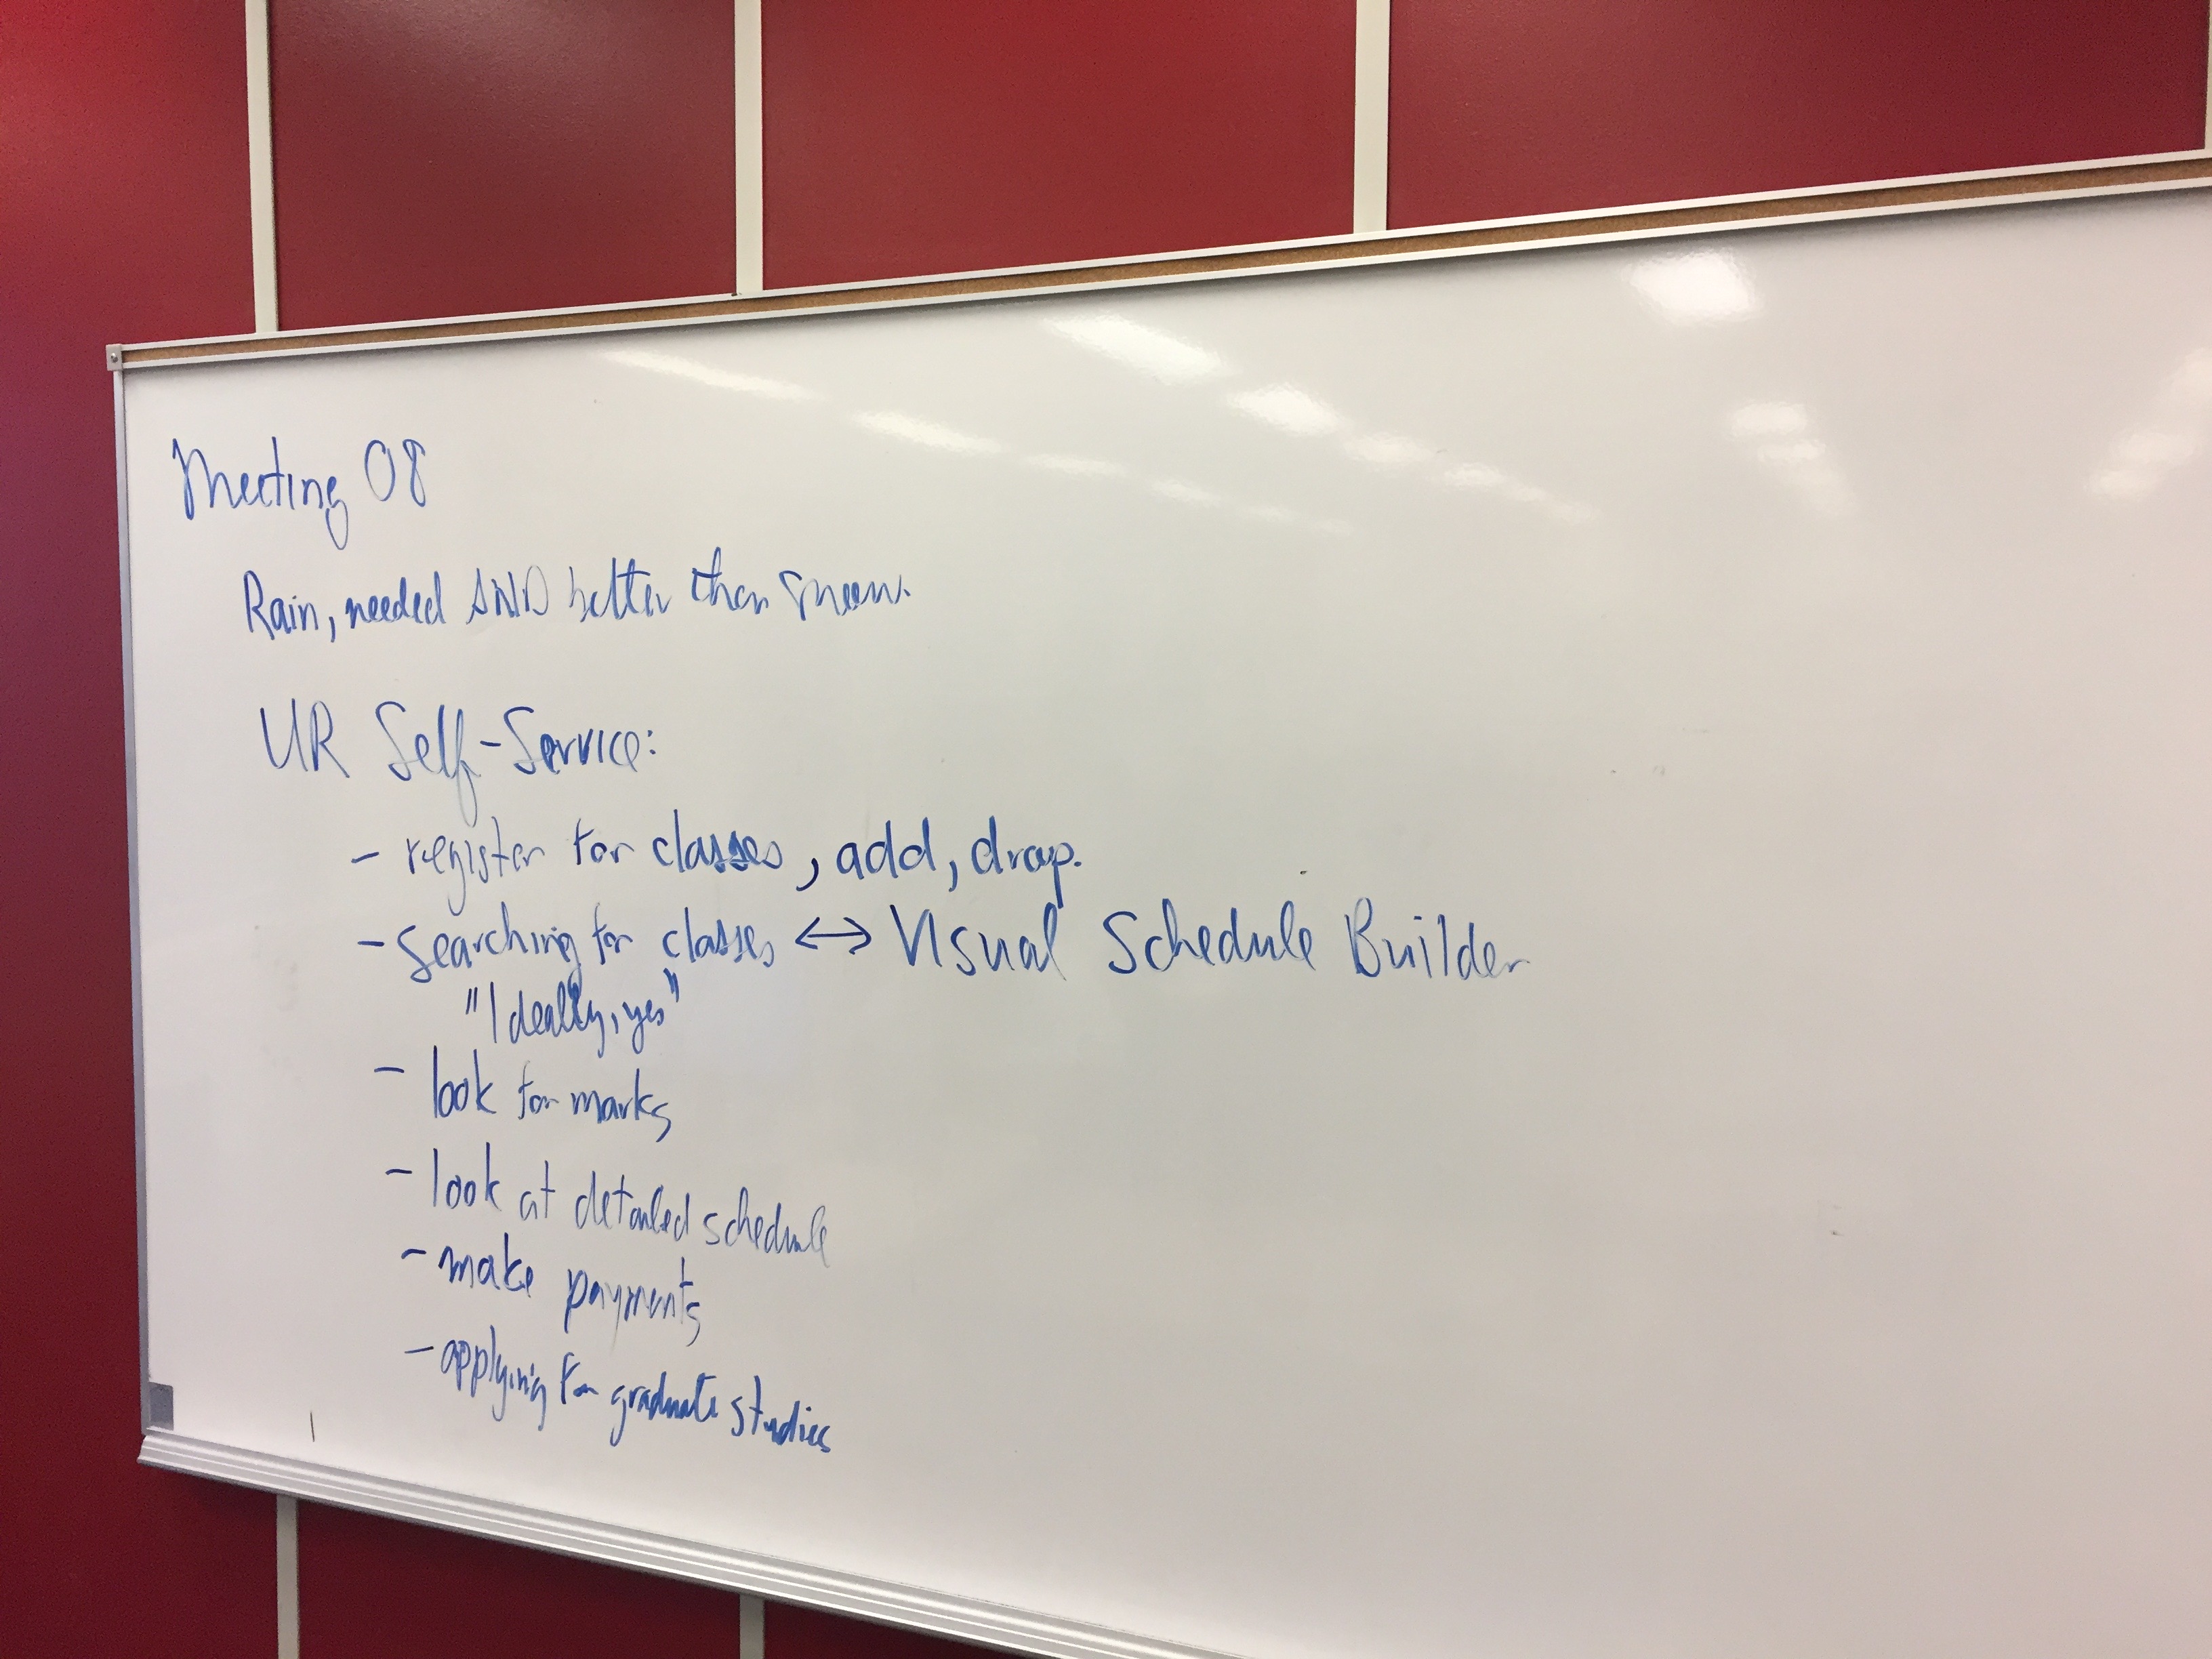 Meeting 08
Rain, needed AND better than snow.
UR Self-Service:
- register for classes, add, drop.
- Searching for classes ↔ Visual Schedule Builder
"Ideally, yes"
- look for marks
- look at detailed schedule
- make payments
- applying for graduate studies